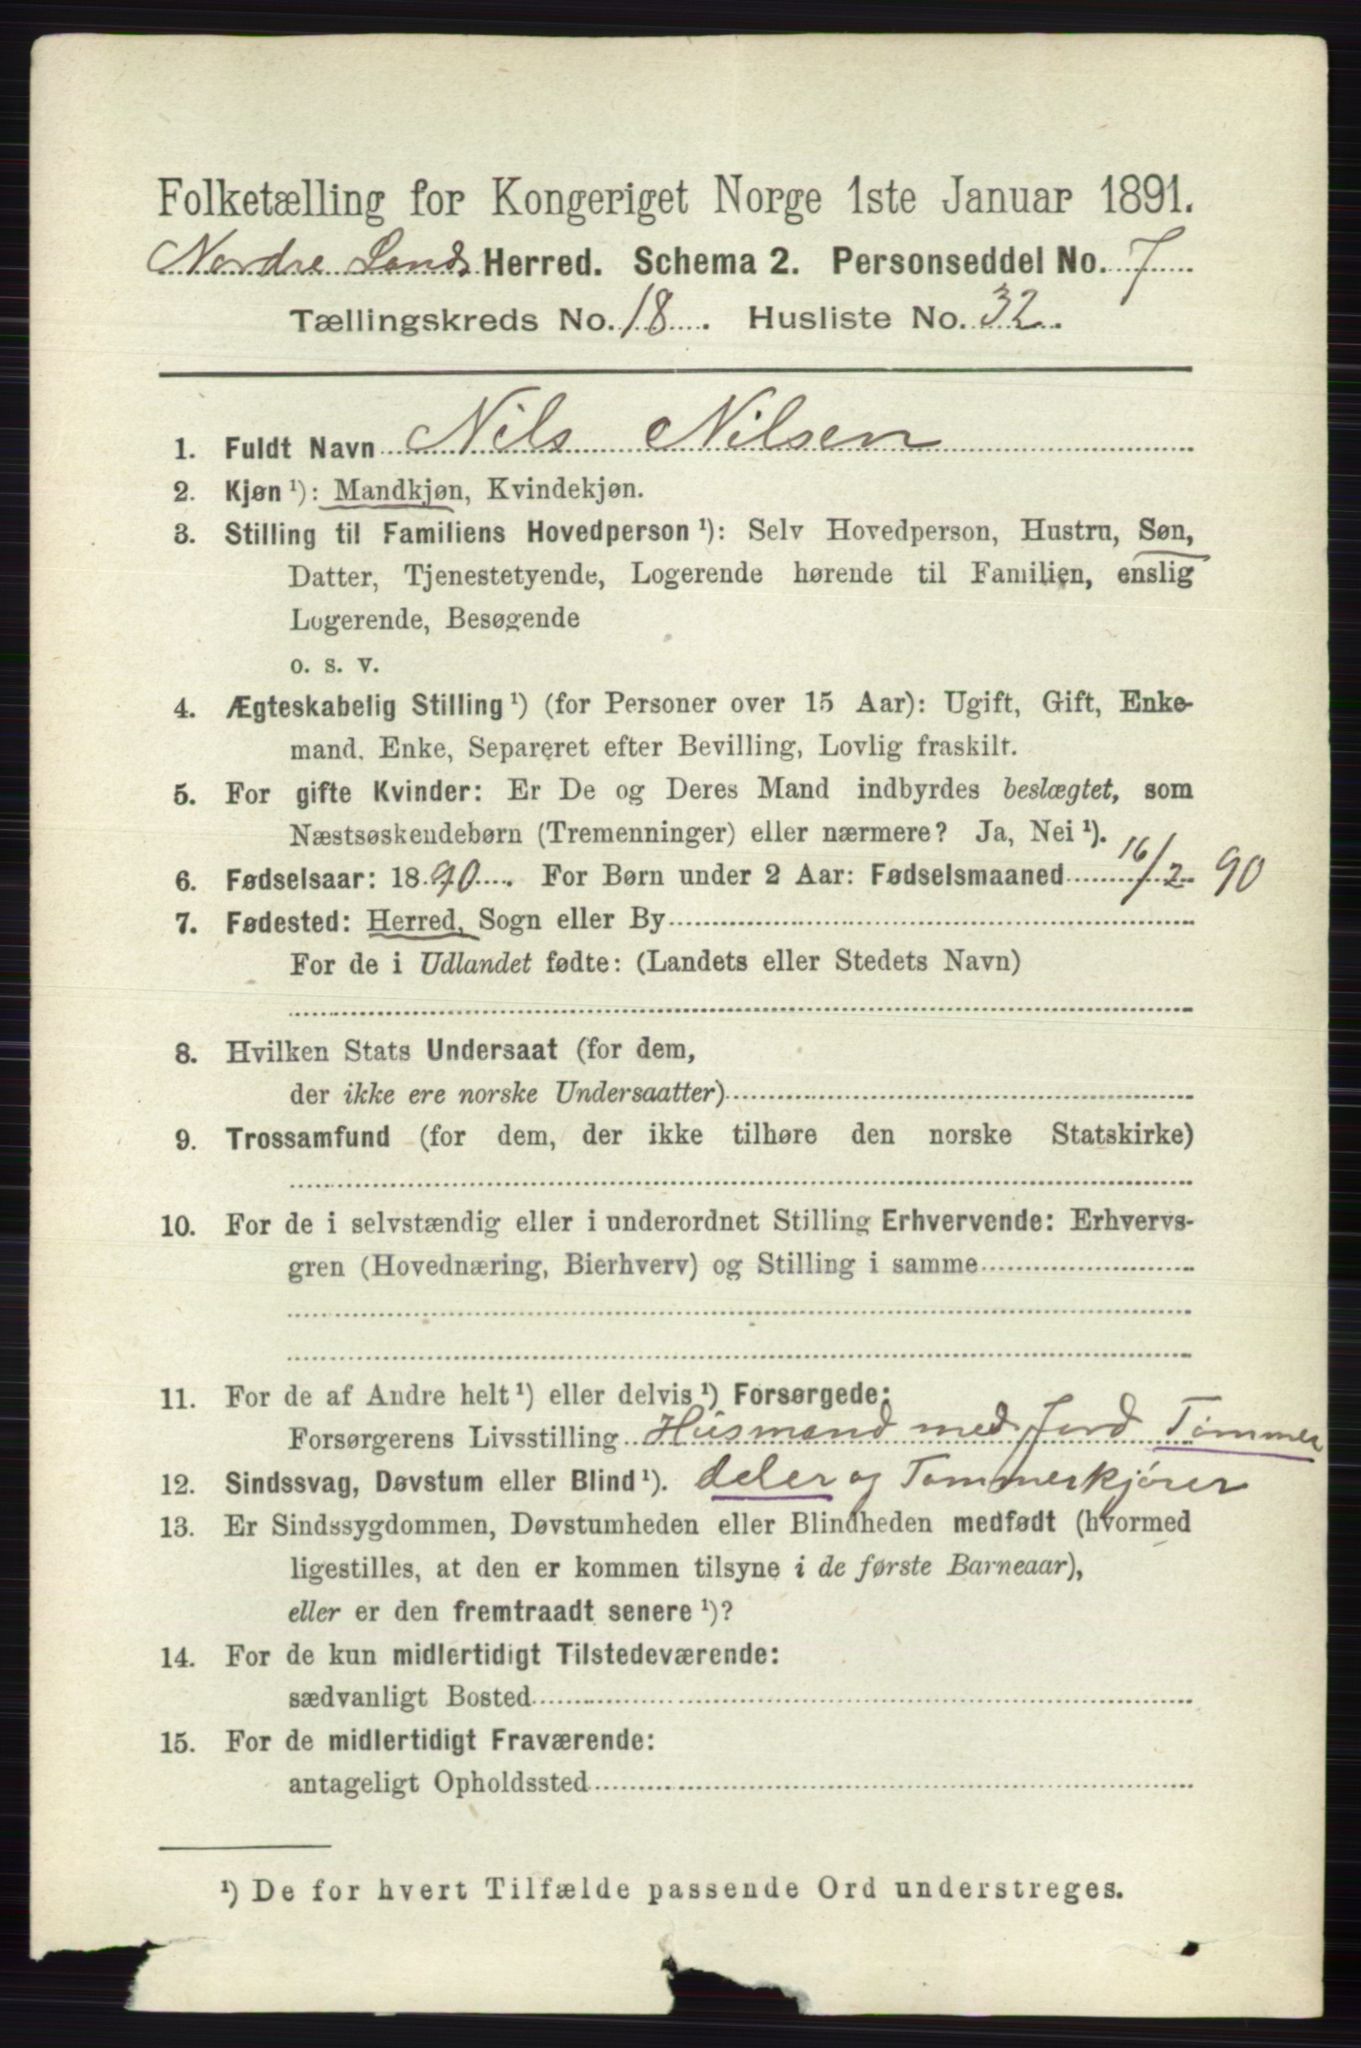 Folketælling for Kongeriget Norge 1ste Januar 1891.
Nordre Lands Herred. Schema 2. Personseddel No. 7
Tællingskreds No. 18. Husliste No. 32.
1. Fuldt Navn Nils Nilsen
2. Kjøn ¹): Mandkjøn, Kvindekjøn.
3. Stilling til Familiens Hovedperson ¹): Selv Hovedperson, Hustru, Søn,
Datter, Tjenestetyende, Logerende hørende til Familien, enslig
Logerende, Besøgende
o. s. v.
4. Ægteskabelig Stilling ¹) (for Personer over 15 Aar): Ugift, Gift, Enke-
mand, Enke, Separeret efter Bevilling, Lovlig fraskilt.
5. For gifte Kvinder: Er De og Deres Mand indbyrdes beslægtet, som
Næstsøskendebørn (Tremenninger) eller nærmere? Ja, Nei ¹).
6. Fødselsaar: 1890. For Børn under 2 Aar: Fødselsmaaned 16/2 90
7. Fødested: Herred, Sogn eller By
For de i Udlandet fødte: (Landets eller Stedets Navn)
8. Hvilken Stats Undersaat (for dem,
der ikke ere norske Undersaatter)
9. Trossamfund (for dem, der ikke tilhøre den norske Statskirke)
10. For de i selvstændig eller i underordnet Stilling Erhvervende: Erhvervs-
gren (Hovednæring, Bierhverv) og Stilling i samme
11. For de af Andre helt ¹) eller delvis ¹) Forsørgede:
Forsørgerens Livsstilling Husmand med Jord Tømmer
12. Sindssvag, Døvstum eller Blind ¹). deler og Tømmerkjører
13. Er Sindssygdommen, Døvstumheden eller Blindheden medfødt (hvormed
ligestilles, at den er kommen tilsyne i de første Barneaar),
eller er den fremtraadt senere ¹)?
14. For de kun midlertidigt Tilstedeværende:
sædvanligt Bosted
15. For de midlertidigt Fraværende:
antageligt Opholdssted
¹) De for hvert Tilfælde passende Ord understreges.